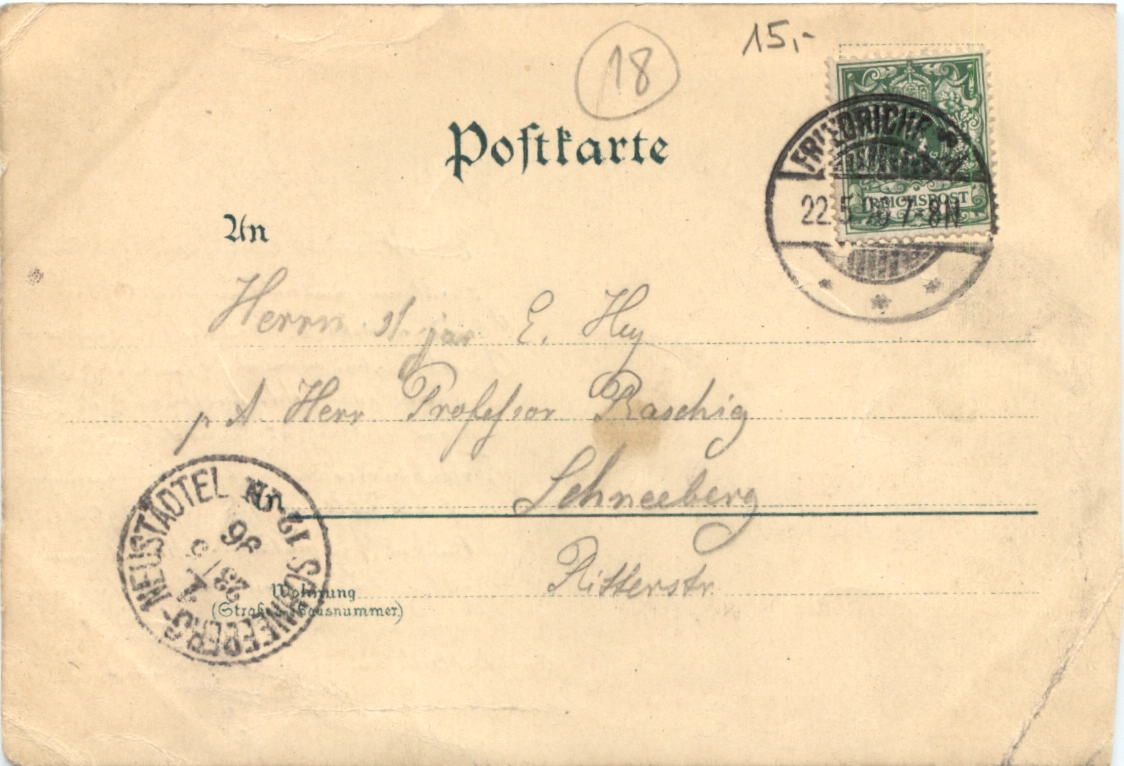 18
15,-
Postkarte
REICHSPOST
22.5. 7-8N
An
Herrn E. Hey
p. A. Herr Professor Raschig
Schneeberg
Ritterstr.
Wohnung
(Straße und Hausnummer)
SCHNEEBERG-NEUSTÄDTEL
12-1N
23/5
96